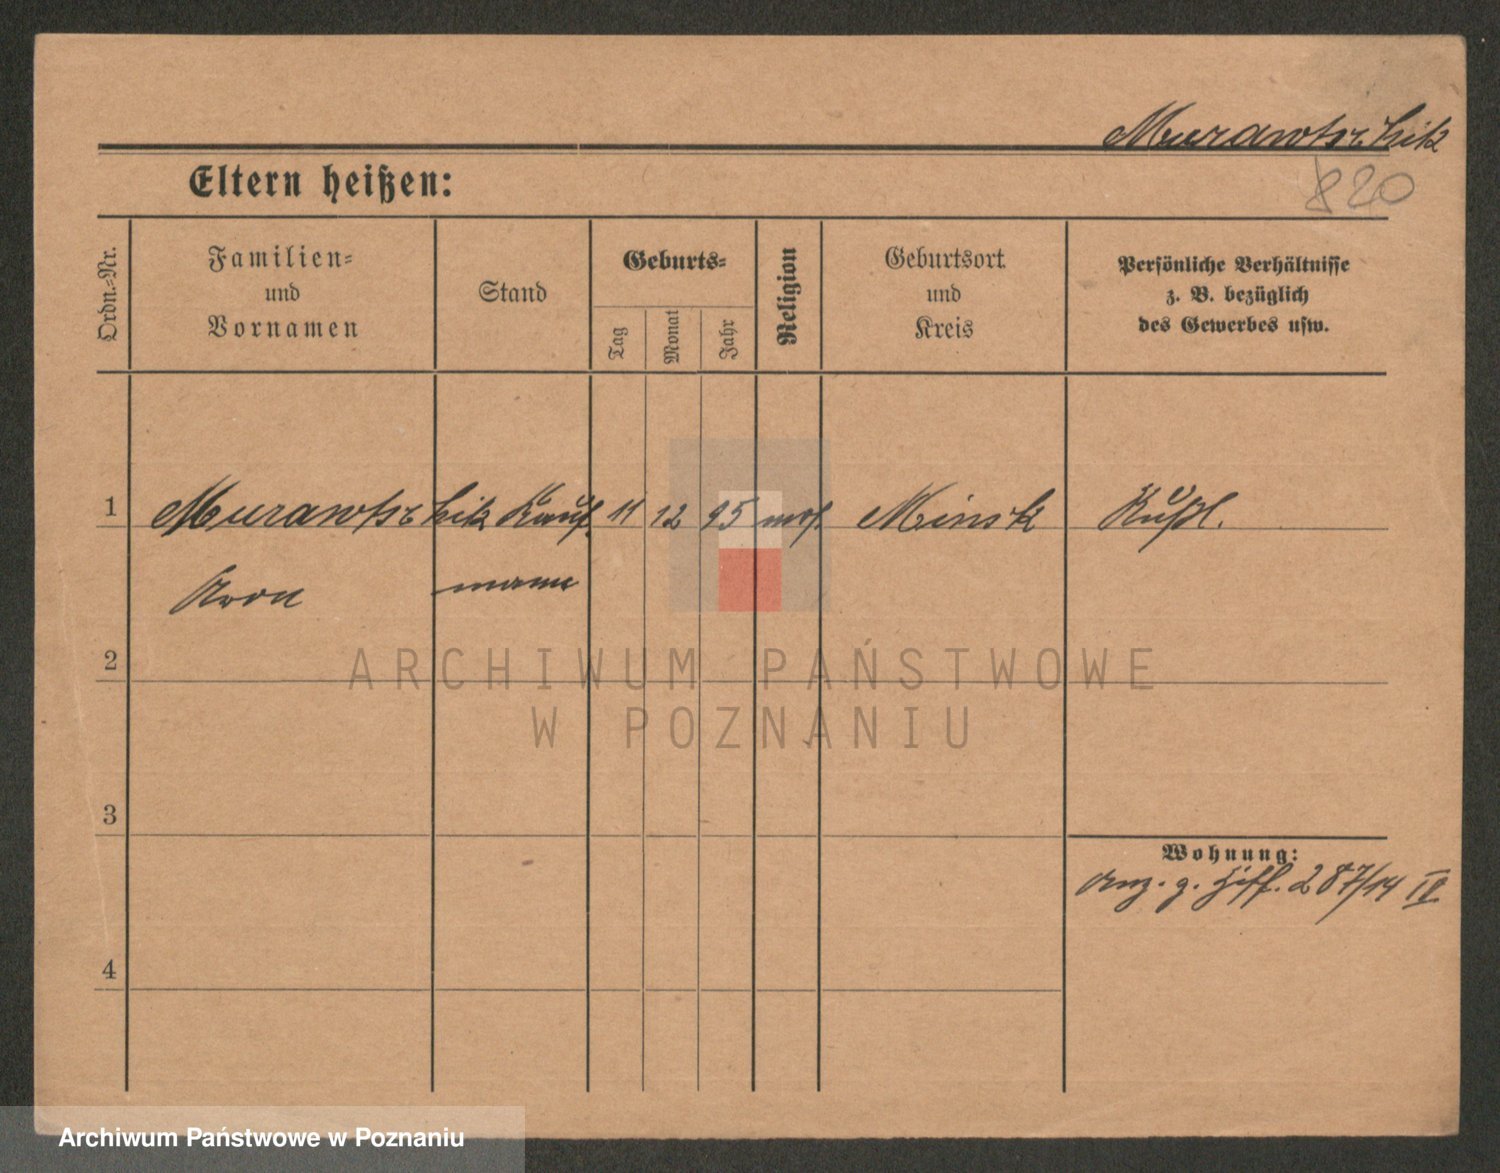 Murawtschik
820
Eltern heißen:
Ordn.-Nr.
Familien-
und
Vornamen
Stand
Geburts-
Tag
Monat
Jahr
Religion
Geburtsort
und
Kreis
Persönliche Verhältnisse
z. B. bezüglich
des Gewerbes usw.
1 Murawtschik Kauf- 11 12 95 mos. Minsk Rußl.
Aron mann
2
ARCHIWUM PAŃSTWOWE
W POZNANIU
3
Wohnung:
Anz. g. Ziff. 287/14 IV
4
Archiwum Państwowe w Poznaniu